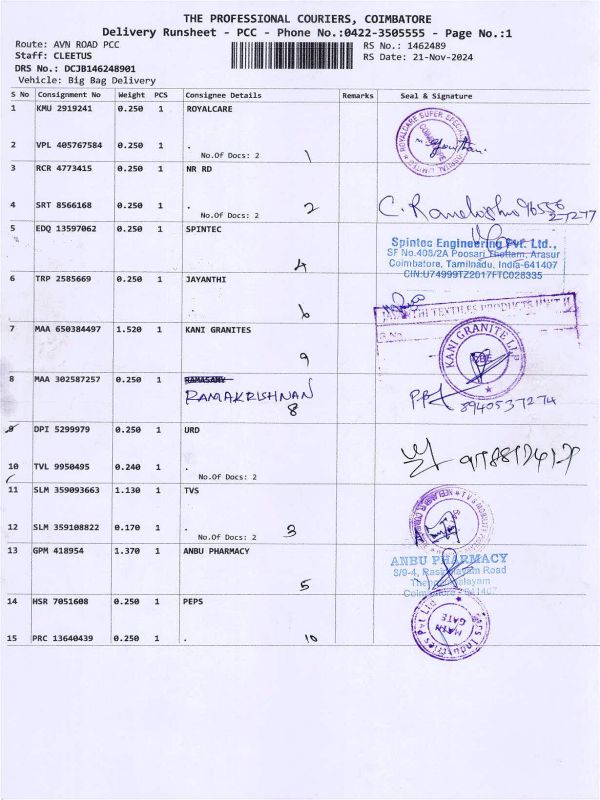 THE PROFESSIONAL COURIERS, COIMBATORE
Delivery Runsheet - PCC - Phone No.:0422-3505555 - Page No.:1
Route: AVN ROAD PCC
RS No.: 1462489
Staff: CLEETUS
RS Date: 21-Nov-2024
DRS No.: DCJB146248901
Vehicle: Big Bag Delivery
S No Consignment No Weight PCS Consignee Details Remarks Seal & Signature
1 KMU 2919241 0.250 1 ROYALCARE
2 VPL 405767584 0.250 1 .
No.Of Docs: 2 1
3 RCR 4773415 0.250 1 NR RD
4 SRT 8566168 0.250 1 . 2
No.Of Docs: 2
5 EDQ 13597062 0.250 1 SPINTEC
4
Spintec Engineering Pvt. Ltd.,
SF No.408/2A Poosari Thottam, Arasur
Coimbatore, Tamilnadu, India-641407
CIN:U74999TZ2017FTC028335
6 TRP 2585669 0.250 1 JAYANTHI
6
TEXTILES PRODUCTS UNIT II
7 MAA 650384497 1.520 1 KANI GRANITES
9
KANI GRANITE LLP
8 MAA 302587257 0.250 1 RAMASAMY
RAMAKRISHNAN
8
8940537274
9 DPI 5299979 0.250 1 URD
10 TVL 9950495 0.240 1 .
No.Of Docs: 2
11 SLM 359093663 1.130 1 TVS
12 SLM 359108822 0.170 1 . 3
No.Of Docs: 2
13 GPM 418954 1.370 1 ANBU PHARMACY
5
ANBU PHARMACY
Road
Coimbatore - 641407
14 HSR 7051608 0.250 1 PEPS
15 PRC 13640439 0.250 1 . 10
MAIN
GATE